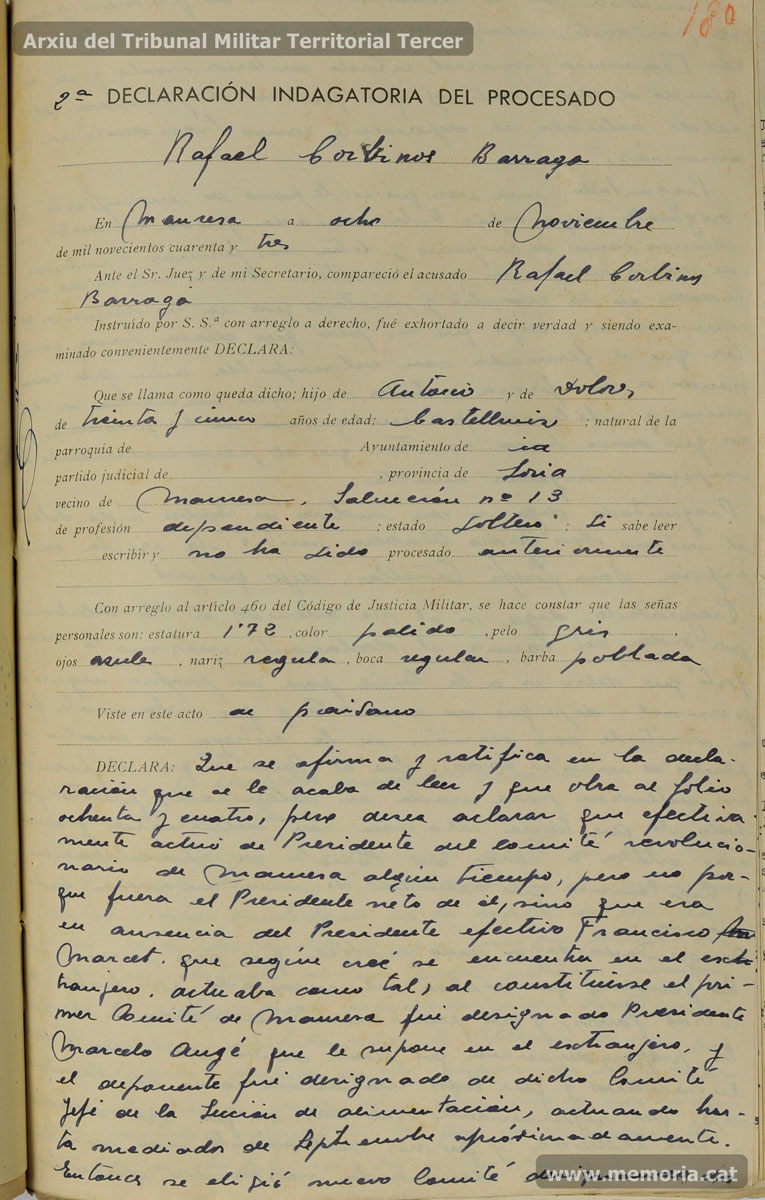 180
Arxiu del Tribunal Militar Territorial Tercer
2ª DECLARACIÓN INDAGATORIA DEL PROCESADO
Rafael Corvinos Barraga
En Manresa a ocho de Noviembre
de mil novecientos cuarenta y tres
Ante el Sr. Juez y de mi Secretario, compareció el acusado Rafael Corvinos
Barraga
Instruído por S. S.ª con arreglo a derecho, fué exhortado a decir verdad y siendo exa-
minado convenientemente DECLARA:
Que se llama como queda dicho; hijo de Antonio y de Dolores
de treinta y cinco años de edad; ; natural de la
parroquia de Ayuntamiento de id
partido judicial de , provincia de Soria
vecino de Manresa, nº 13
de profesión dependiente ; estado Soltero ; Si sabe leer
escribir y no ha sido procesado anteriormente
Con arreglo al artíclo 460 del Código de Justicia Militar, se hace constar que las señas
personales son: estatura 1'72, color palido, pelo gris,
ojos azules, nariz regular, boca regular, barba poblada
Viste en este acto de paisano
DECLARA: Que se afirma y ratifica en la decla-
ración que se le acaba de leer y que obra al folio
ochenta y cuatro, pero desea aclarar que efectiva-
mente actuó de Presidente del comité revolucio-
nario de Manresa algún tiempo, pero no por-
que fuera el Presidente neto de él, sino que era
en ausencia del Presidente efectivo Francisco
Marcet. que según creé se encuentra en el esc
tranjero. actuaba como tal, al constituirse el pri-
mer Comité de Manresa fué designado Presidente
Marcelo Augé que le supone en el esctranjero, y
el deponente fué designado de dicho Comité
Jefe de la Sección de alimentación, actuando has-
ta mediados de Septiembre aprósimadamente.
Entonces se eligió nuevo Comité
www.memoria.cat